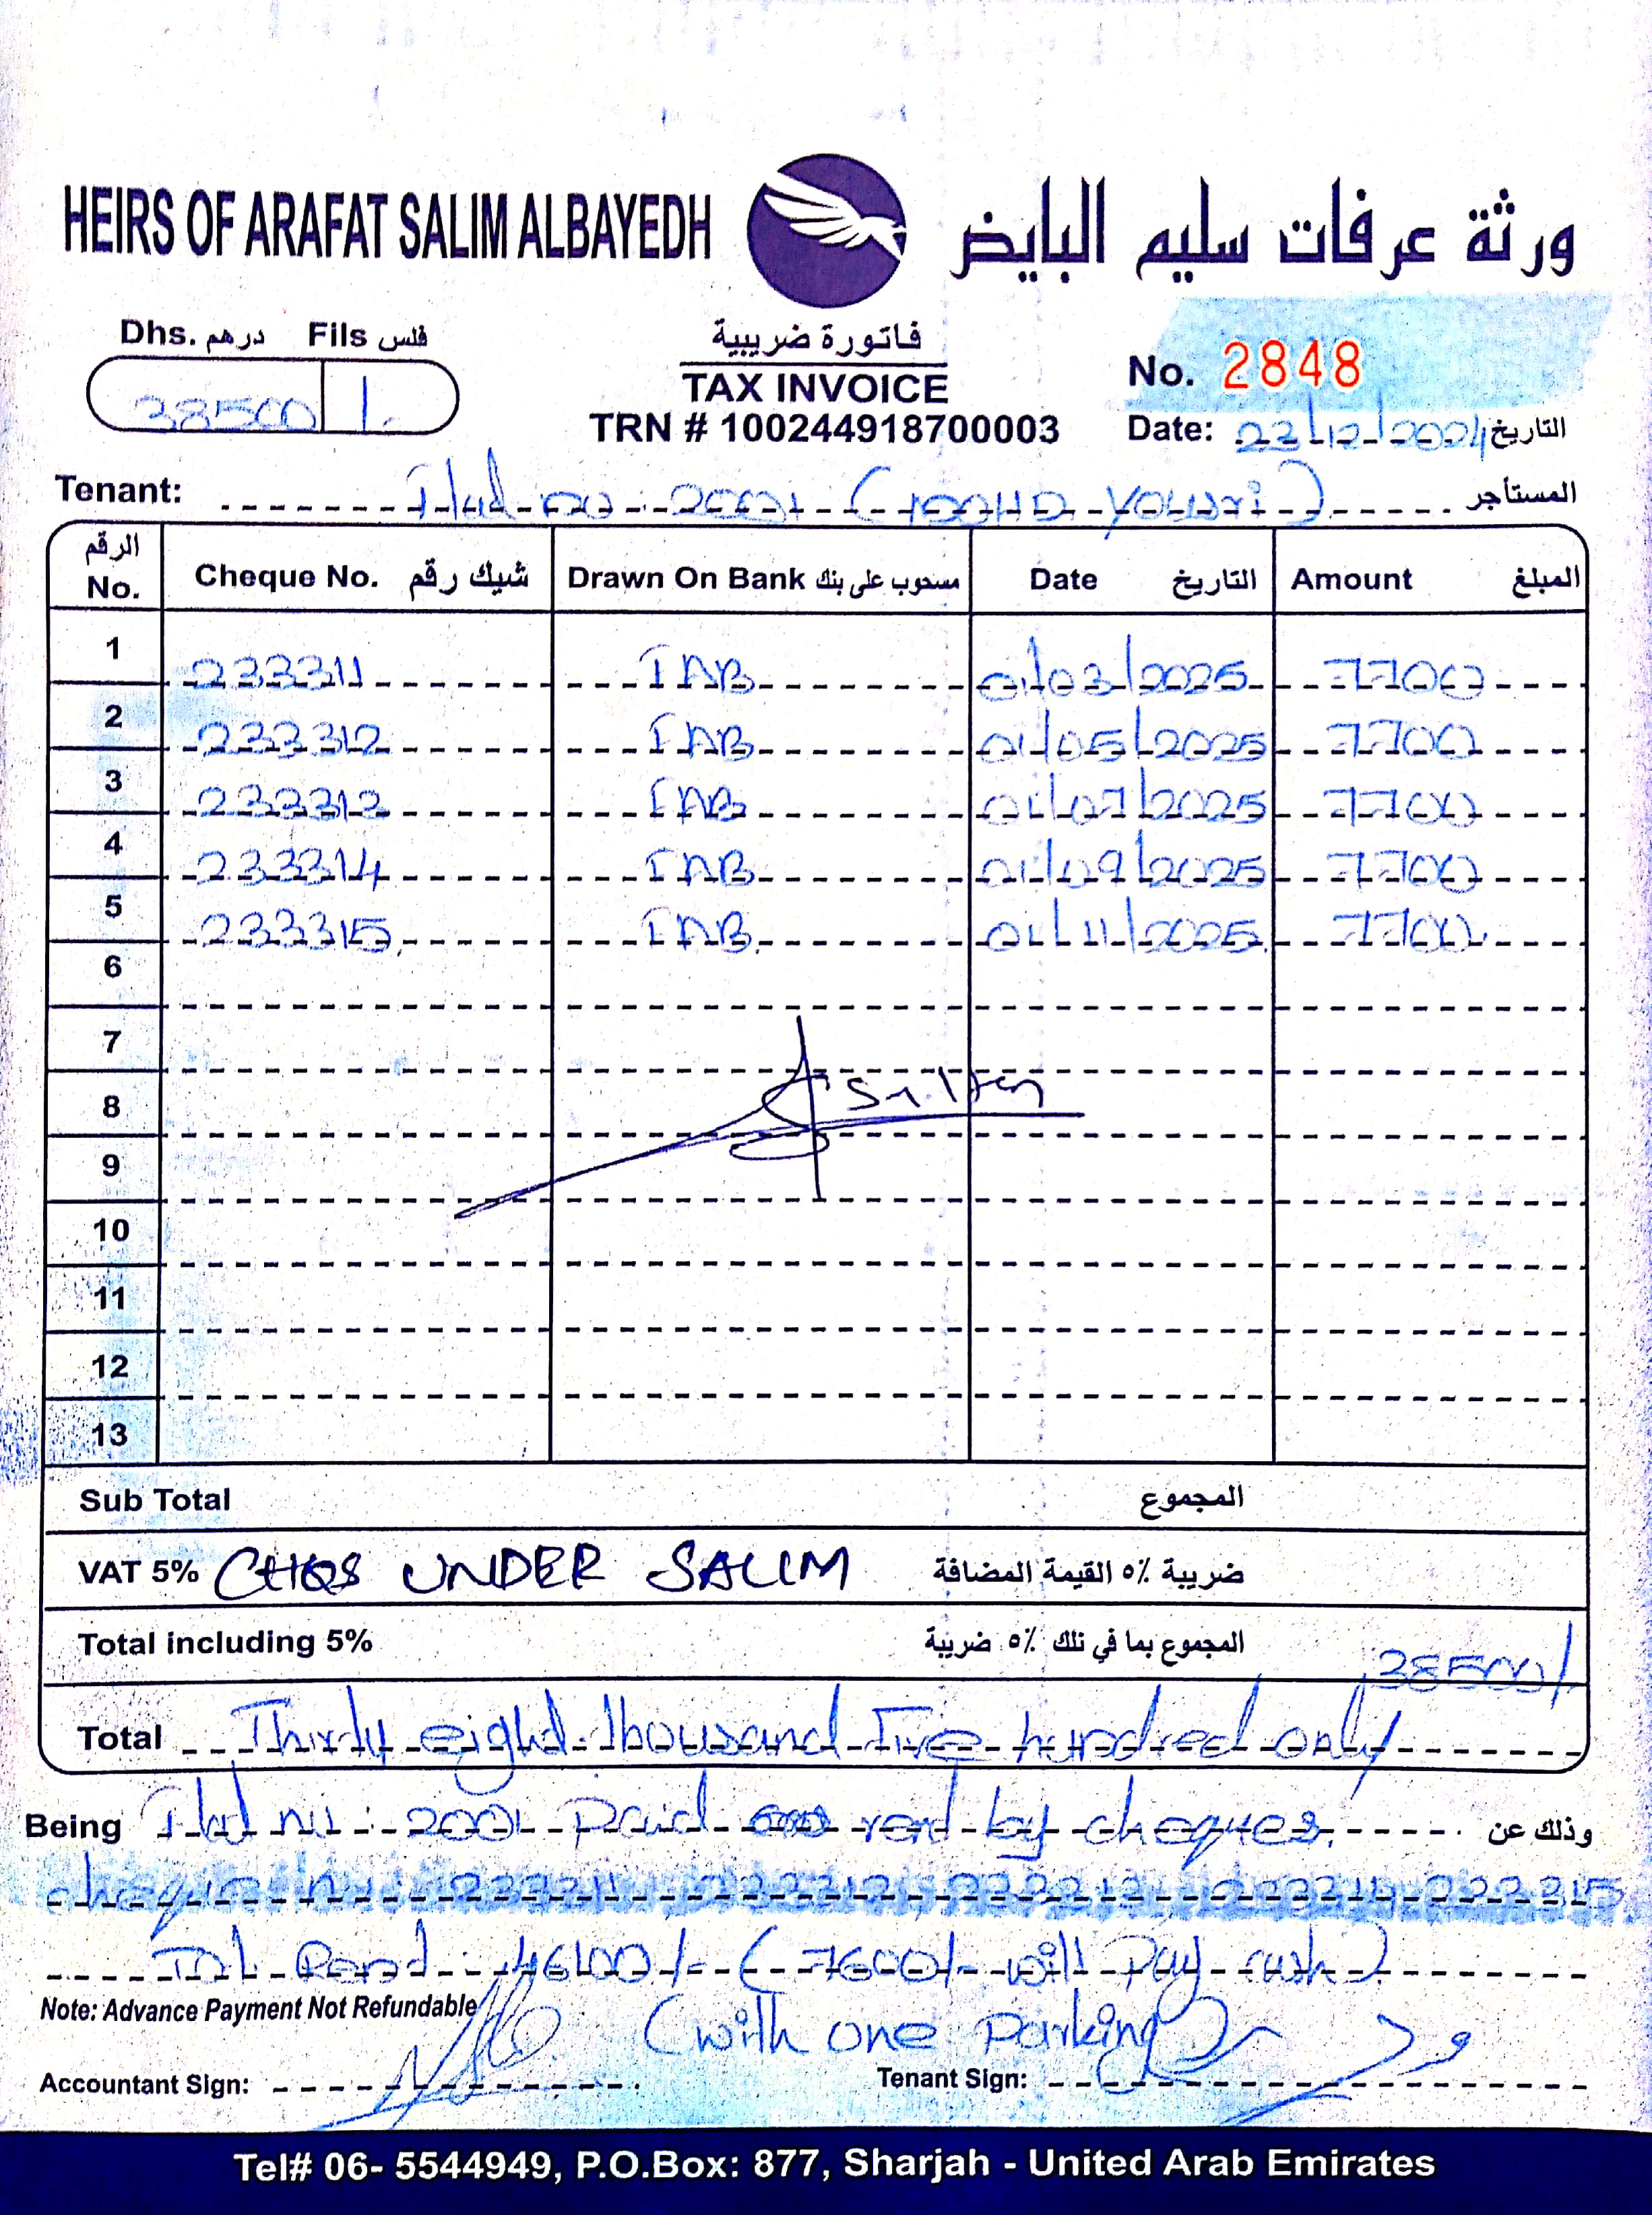 HEIRS OF ARAFAT SALIM ALBAYEDH ورثة عرفات سليم البايض
Dhs. درهم Fils فلس
38500 /-
فاتورة ضريبية
TAX INVOICE
TRN # 100244918700003
No. 2848
Date: 22/12/2024 التاريخ
Tenant: Flat no: 2001 ( Yousri) المستأجر
الرقم No. Cheque No. شيك رقم Drawn On Bank مسحوب على بنك Date التاريخ Amount المبلغ
1 233311 FAB 01/03/2025 7700
2 233312 FAB 01/05/2025 7700
3 233313 FAB 01/07/2025 7700
4 233314 FAB 01/09/2025 7700
5 233315 FAB 01/11/2025 7700
6
7
8
9
10
11
12
13
Sub Total المجموع
VAT 5% CHQS UNDER SALIM ضريبة ٥٪ القيمة المضافة
Total including 5% المجموع بما في ذلك ٥٪ ضريبة 38500/
Total Thirty eight thousand Five hundred only
Being Flat no: 2001 Paid rent by cheques. وذلك عن
cheque no: 233311, 233312, 233313, 233314, 233315
46100/- ( 7600/- will Pay cash)
Note: Advance Payment Not Refundable
(with one Parking)
Accountant Sign: Tenant Sign:
Tel# 06- 5544949, P.O.Box: 877, Sharjah - United Arab Emirates